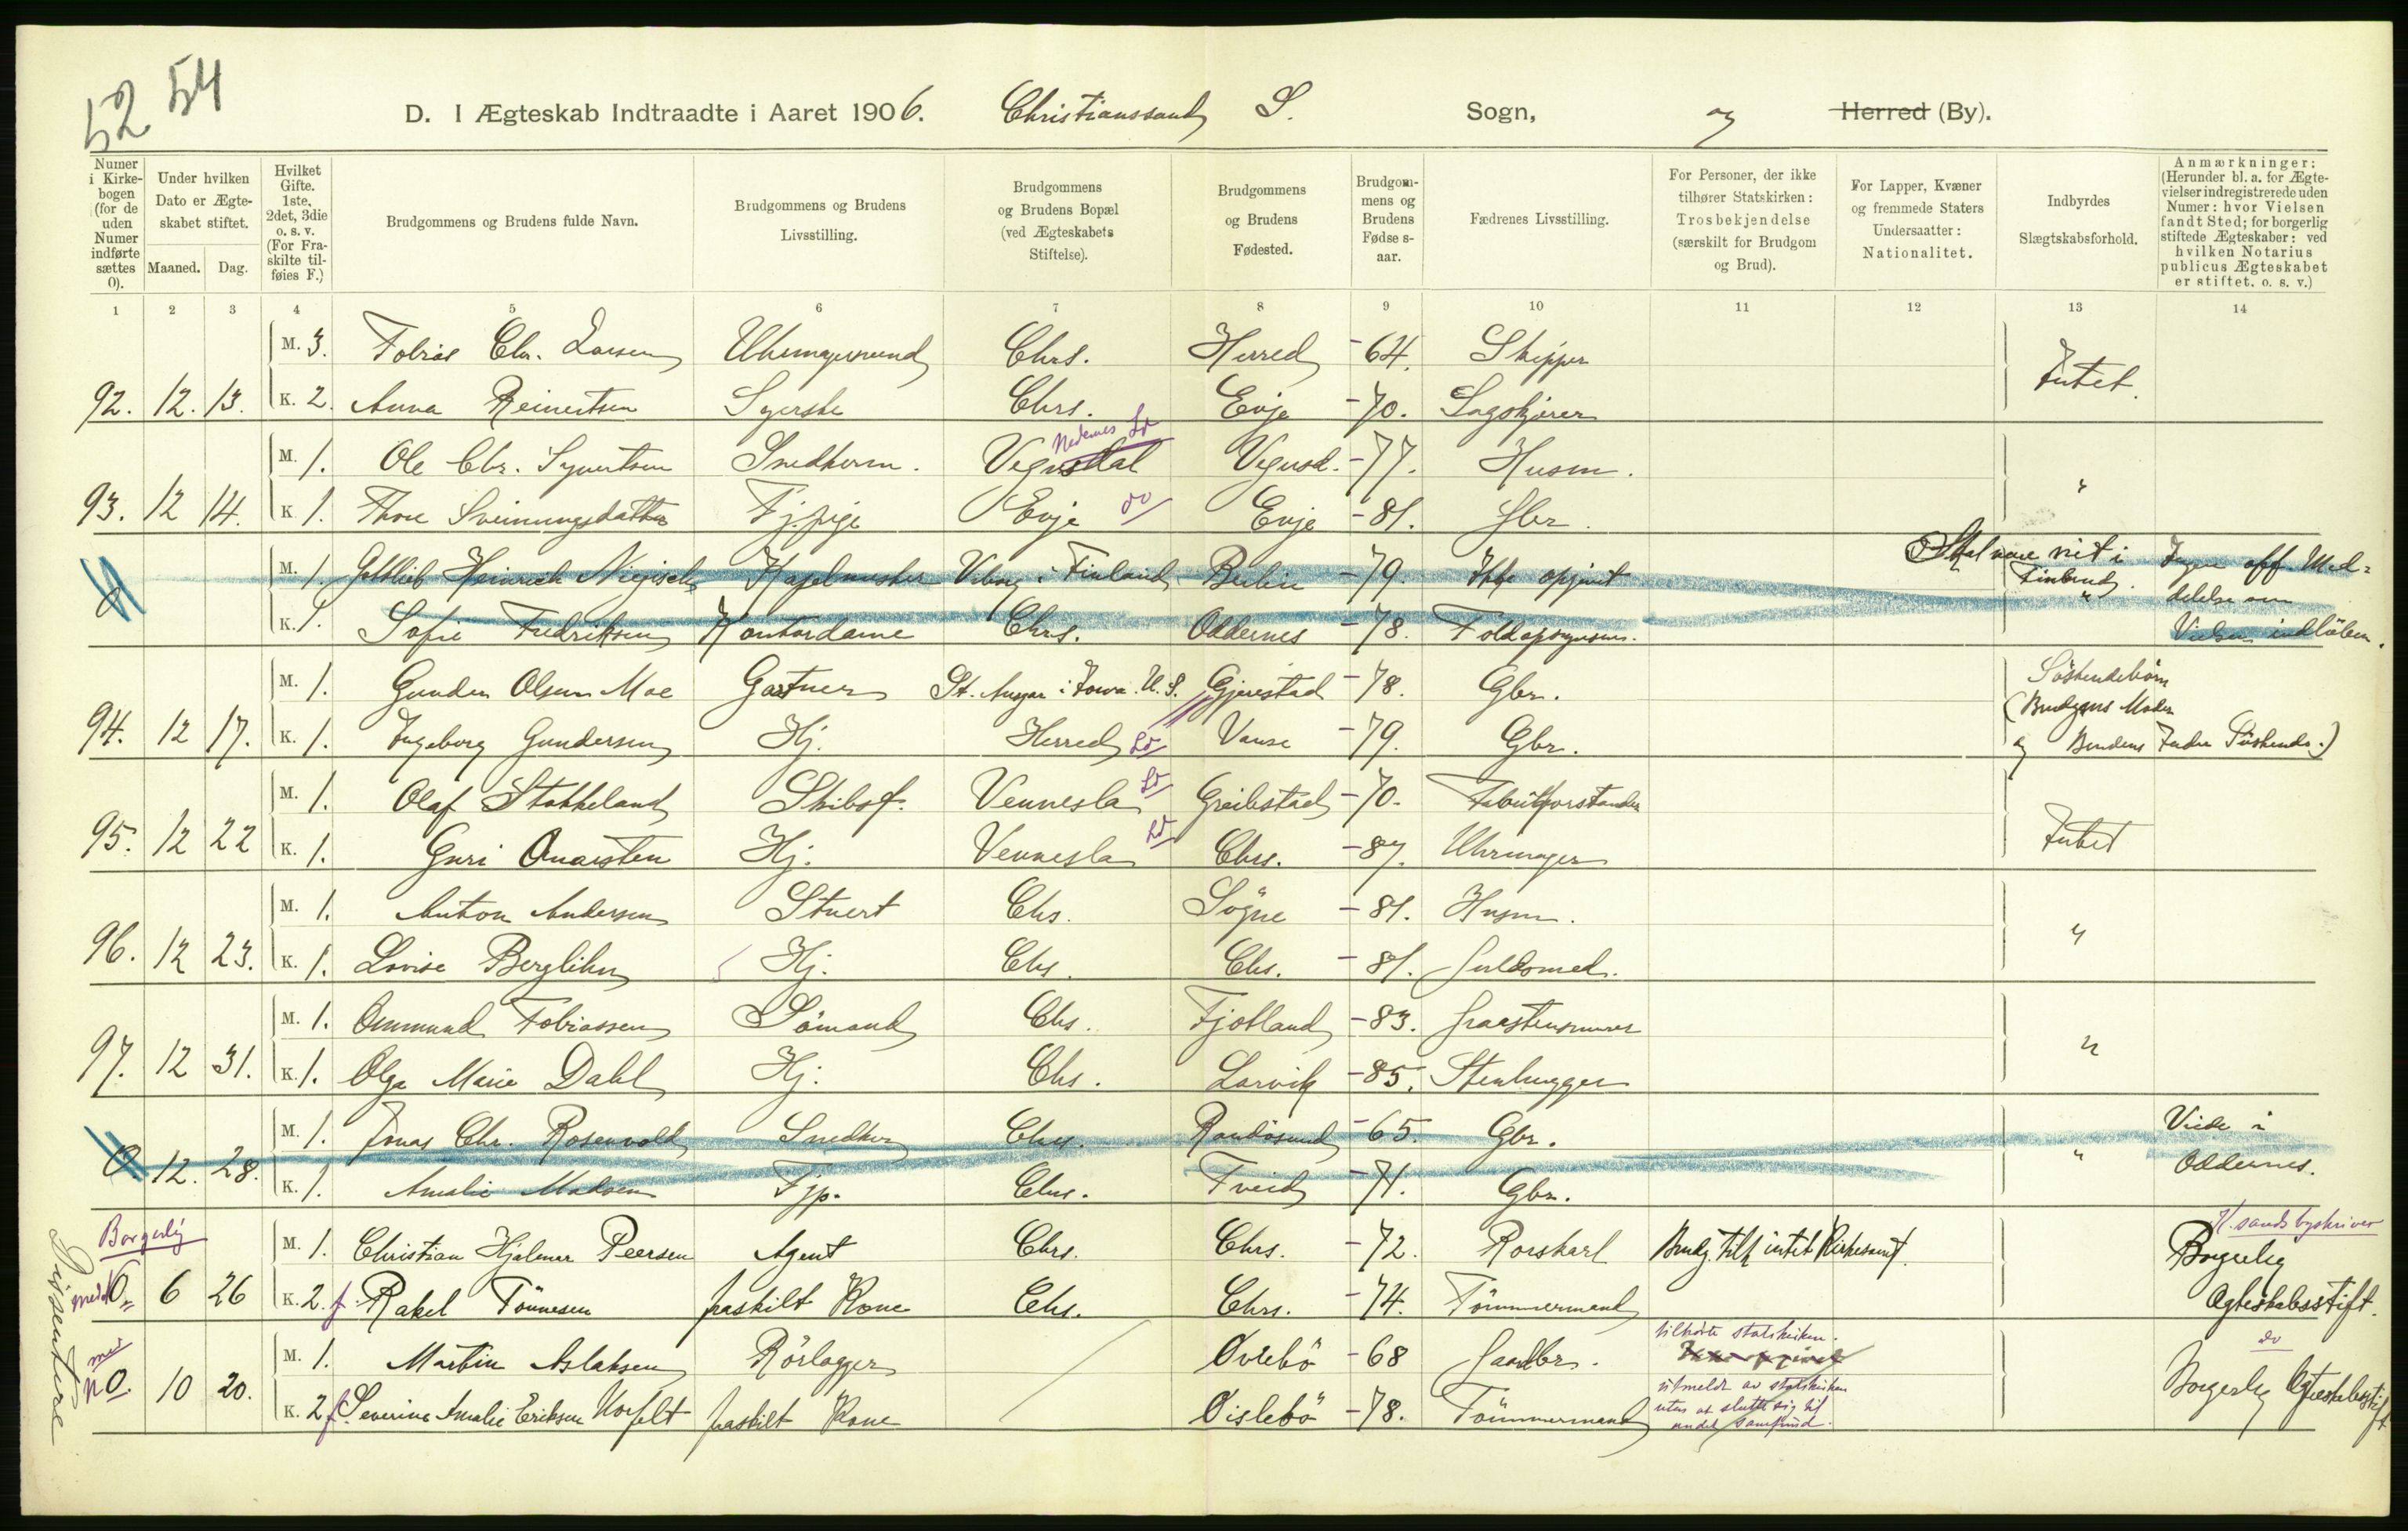 52 54
D. I Ægteskab Indtraadte i Aaret 1906. Christianssand S. Sogn, og Herred (By).
Numer i Kirke-bogen (for de uden Numer indførte sættes 0).
Under hvilken Dato er Ægte-skabet stiftet.
Maaned. Dag.
Hvilket Gifte. 1ste, 2det, 3die o. s. v. (For Fra-skilte til-føies F.)
Brudgommens og Brudens fulde Navn.
Brudgommens og Brudens Livsstilling.
Brudgommens og Brudens Bopæl (ved Ægteskabets Stiftelse).
Brudgommens og Brudens Fødested.
Brudgom-mens og Brudens Fødse s-aar.
Fædrenes Livsstilling.
For Personer, der ikke tilhører Statskirken: Trosbekjendelse (særskilt for Brudgom og Brud).
For Lapper, Kvæner og fremmede Staters Undersaatter: Nationalitet.
Indbyrdes Slægtskabsforhold.
Anmærkninger: (Herunder bl. a. for Ægte-vielser indregistrerede uden Numer: hvor Vielsen fandt Sted; for borgerlig stiftede Ægteskaber: ved hvilken Notarius publicus Ægteskabet er stiftet. o. s. v.)
1 2 3 4 5 6 7 8 9 10 11 12 13 14
M. 3. Tobias Chr. Larsen Chrs. Herred -64. Skipper
92. 12. 13. K. 2. Anna Reinertsen Syerske Chrs. Evje -70. Sagskjærer Intet.
Nedenes Ld
M. 1. Ole Chr. Syvertsen Snedkerm. Vegusdal Vegusd. -77. Husm.
93. 12 14. K 1. Thore Sveinungsdatter Tj.pige Evje do Evje -81. Gbr. "
M. 1. Gottlieb Heinrich Kapelmester Viborg i Finland Berlin -79. Ikke opgivet Skal være viet i Finland. Ingen off. Med-
0 K. 1. Sofie Fredriksen Kontordame Chrs. Oddernes -78. Toldopsynsm. " delelse om
Vielsen indløben.
M. 1. Gunder Olsen Moe Gartner St. Ansgar i Iowa. U. S. Gjerestad -78. Gbr. Söskendebörn
94. 12 17. K. 1. Ingeborg Gundersen Hj. Herred Ld Vanse -79. Gbr. (Brudgoms Moder
og Brudens Fader Söskende.)
M. 1. Olaf Stokkeland Skibsf. Vennesla Ld Greibstad -70. Fabrikforstander
95. 12 22 K. 1. Guri Qvarsten Hj. Vennesla Ld Chrs. -87. Uhrmager Intet
M. 1. Anton Andersen Stuert Chs. Sögne -81. Husm.
96. 12 23. K. 1. Lovise Berglihn Hj. Chs. Chs. -81. Guldsmed. "
M. 1. Ommund Tobiassen Sömand Chs. Fjotland -83. Graastensmurer
97. 12 31. K. 1. Olga Marie Dahl Hj. Chs. Larvik -85. Stenhugger "
M. 1. Jonas Chr. Rosenvold Snedker Chrs. Randösund -65. Gbr. Viede i
0 12. 28. K. 1. Amalie Madsen Tjp. Chrs. Tveid -71. Gbr. " Oddernes.
Dissentere
Borgerlig K.sands byskriver
M. 1. Christian Hjalmar Peersen Agent Chrs. Chrs. -72. Rorskarl Brudg. tilh intet Kirkesamf. Borgerlig
med 0. 6 26 K. 2. f. Rakel Tönnesen fraskilt Kone Chs. Chrs. -74. Tömmermand Ægteskabsstift.
M. 1. Martin Aslaksen Rörlægger Øvrebö -68 Gaardbr. tilhörte statskirken. do
med 0. 10 20. K. 2 f. Severine Amalie Eriksen fraskilt Kone Øislebö -78. Tömmermand utmeldt av statskirken Borgerlig Ægteskabsstift
uten at slutte sig til
andet samfund.